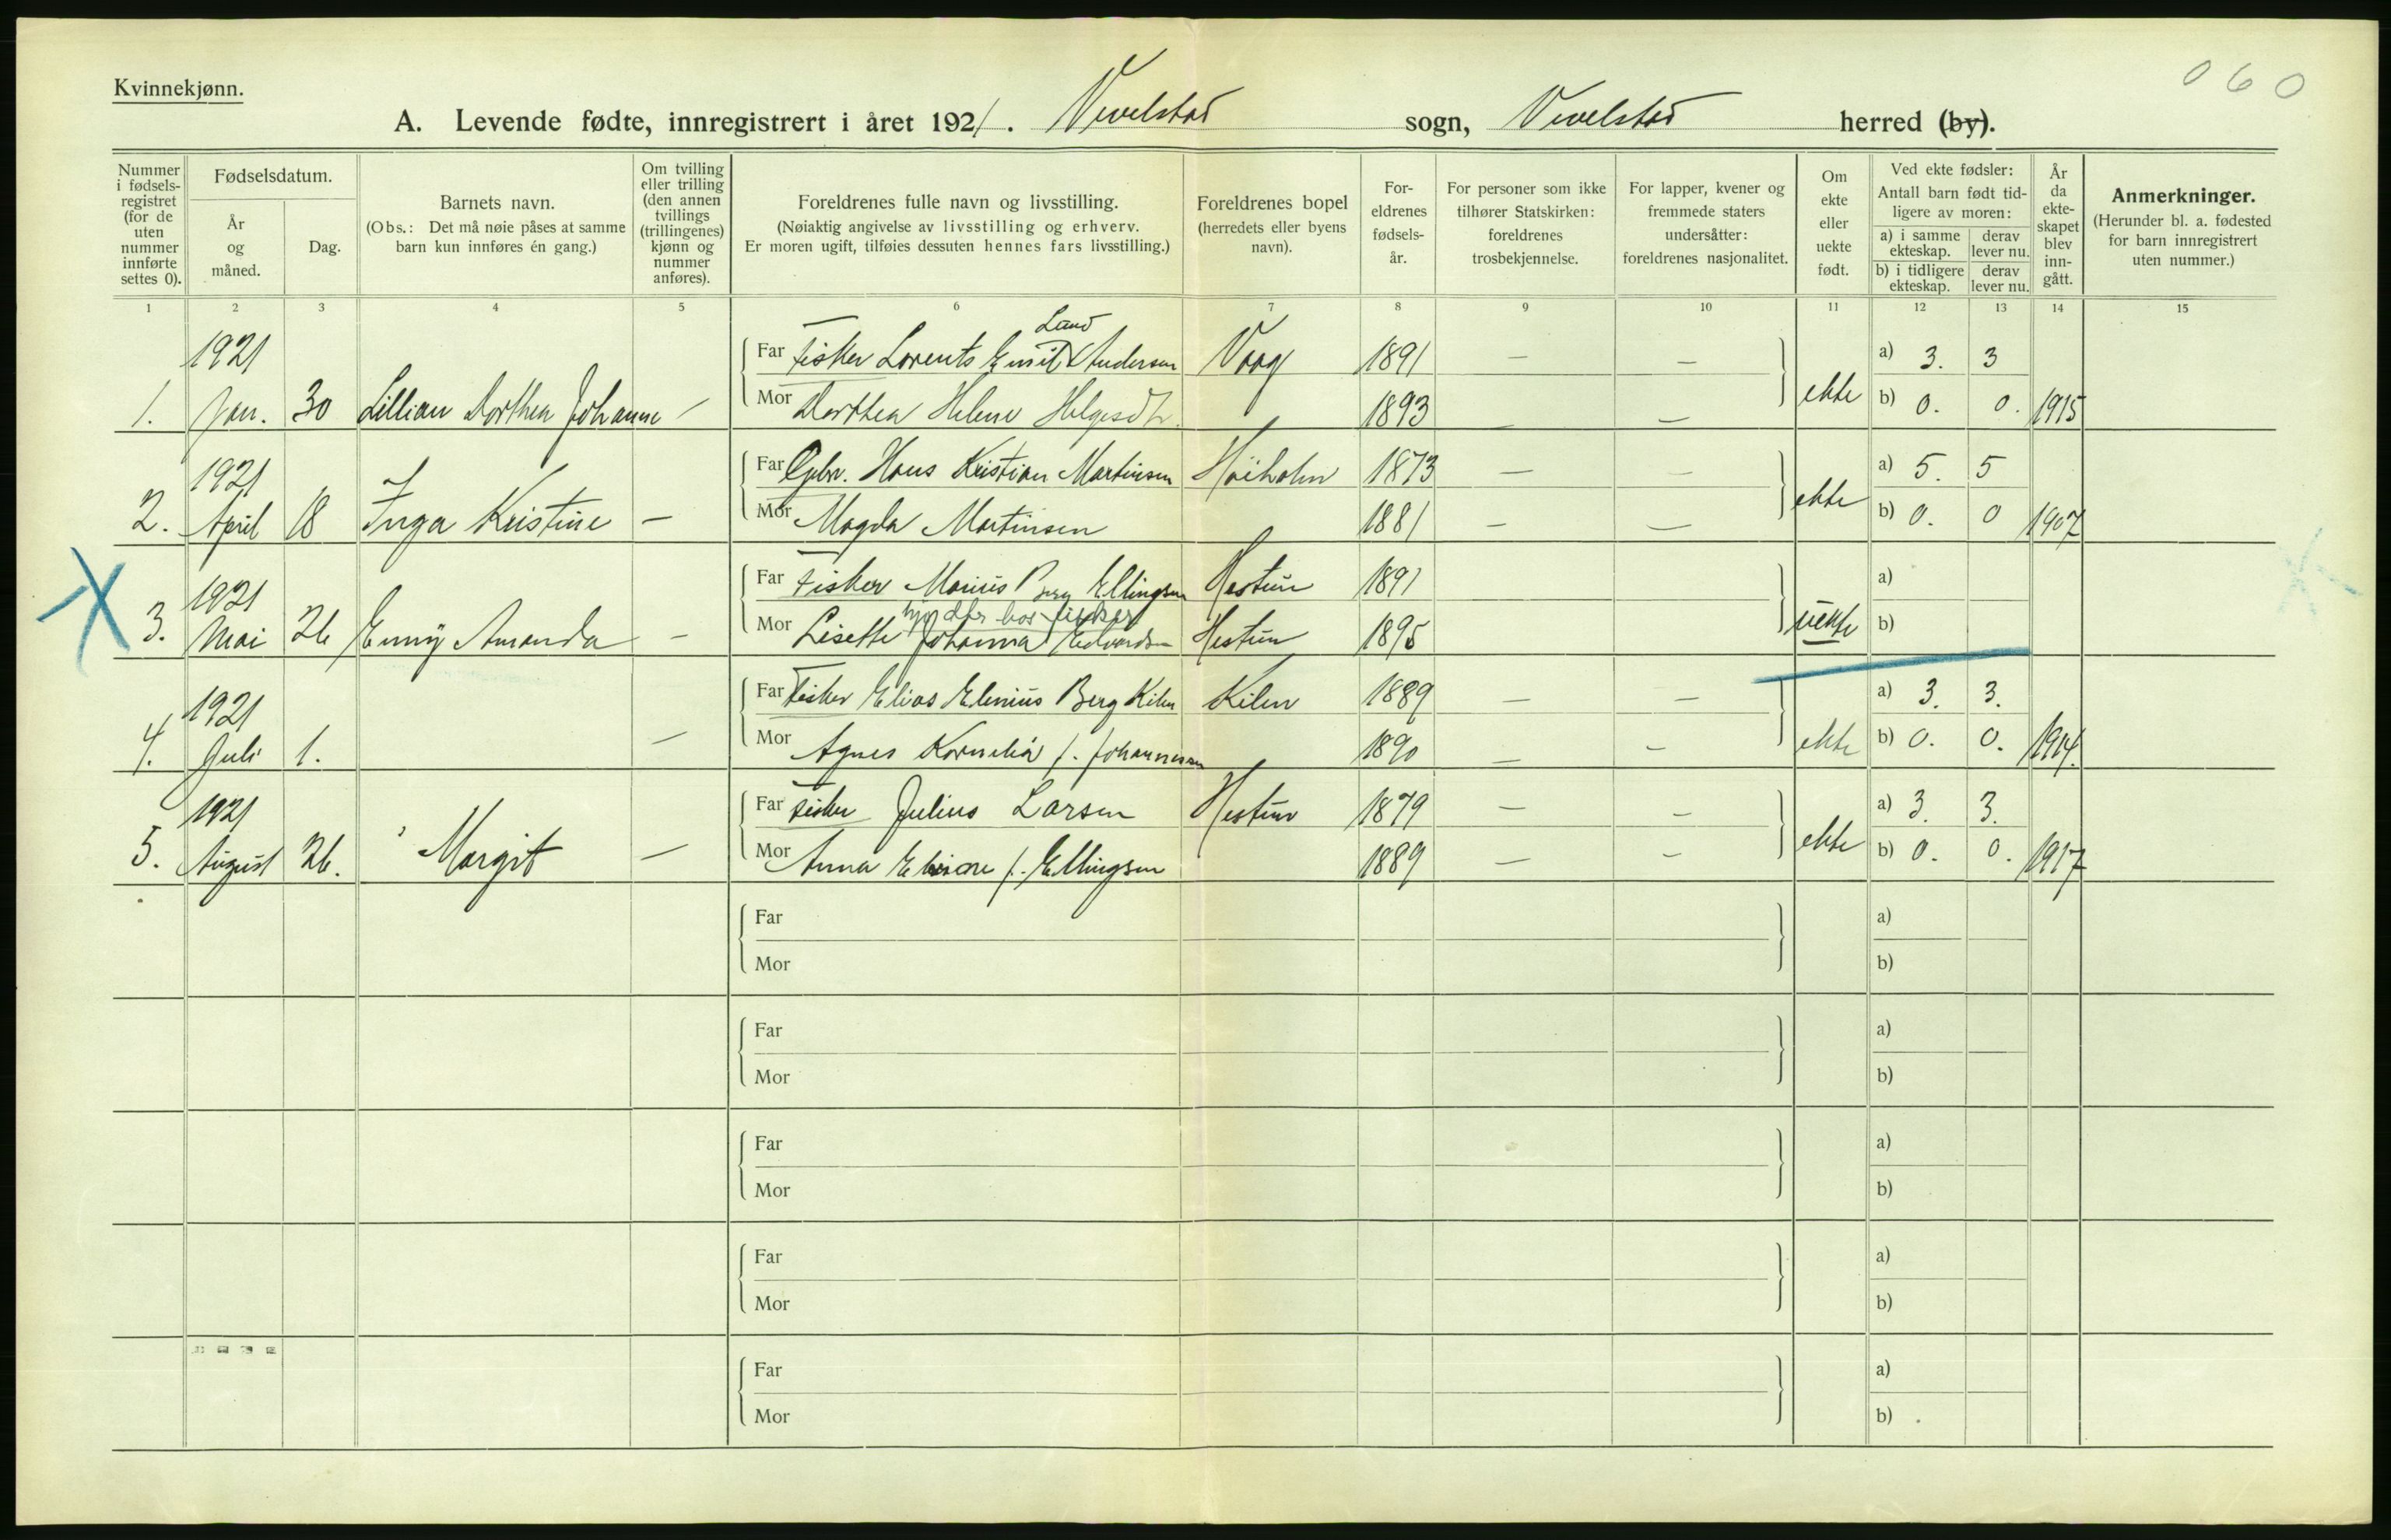 060
Kvinnekjønn.
A. Levende fødte, innregistrert i året 1921. Vevelstad sogn, Vevelstad herred (by).
Nummer i fødsels-registret (for de uten nummer innførte settes 0).
Fødselsdatum.
År og måned.
Dag.
Barnets navn.
(Obs.: Det må nøie påses at samme barn kun innføres én gang.)
Om tvilling eller trilling (den annen tvillings (trillingenes) kjønn og nummer anføres).
Foreldrenes fulle navn og livsstilling.
(Nøiaktig angivelse av livsstilling og erhverv.
Er moren ugift, tilføies dessuten hennes fars livsstilling.)
Foreldrenes bopel
(herredets eller byens navn).
For-eldrenes fødsels-år.
For personer som ikke tilhører Statskirken: foreldrenes trosbekjennelse.
For lapper, kvener og fremmede staters undersåtter: foreldrenes nasjonalitet.
Om ekte eller uekte født.
Ved ekte fødsler:
Antall barn født tid-ligere av moren:
a) i samme ekteskap.
derav lever nu.
b) i tidligere ekteskap.
derav lever nu.
År da ekte-skapet blev inn-gått.
Anmerkninger.
(Herunder bl. a. fødested for barn innregistrert uten nummer.)
1 2 3 4 5 6 7 8 9 10 11 12 13 14 15
Land
1921 Far Fisker Lorents Emil Andersen Vaag 1891 — — a) 3. 3
1. Jan. 30 Lillian Dorthea Johanne — Mor Dorthea Helene Helgesdtr. 1893 — — ekte b) 0. 0. 1915
1921 Far Gbr. Hans Kristian Martinsen Høiholm 1873 — — a) 5. 5
2. April 18 Inga Kristine — Mor Magda Martinsen 1881 — — ekte b) 0. 0 1907
1921 Far Fisker Marius Berg Ellingsen Hestun 1891 a)
3. Mai 26 Enny Amanda — Mor Lisette Johanna Edvardsen Hestun 1895 uekte b)
1921 Far Fisker Elias Elenius Berg Kilen Kilen 1889 — — a) 3. 3.
4. Juli 1. — Mor Agnes Kornelia f. Johannesen 1890 — — ekte b) 0. 0. 1914.
1921 Far Fisker Julius Larsen Hestun 1879 — — a) 3. 3.
5. August 26. Margit — Mor Anna f. Ellingsen 1889 — — ekte b) 0. 0. 1917
Far a)
Mor b)
Far a)
Mor b)
Far a)
Mor b)
Far a)
Mor b)
Far a)
Mor b)